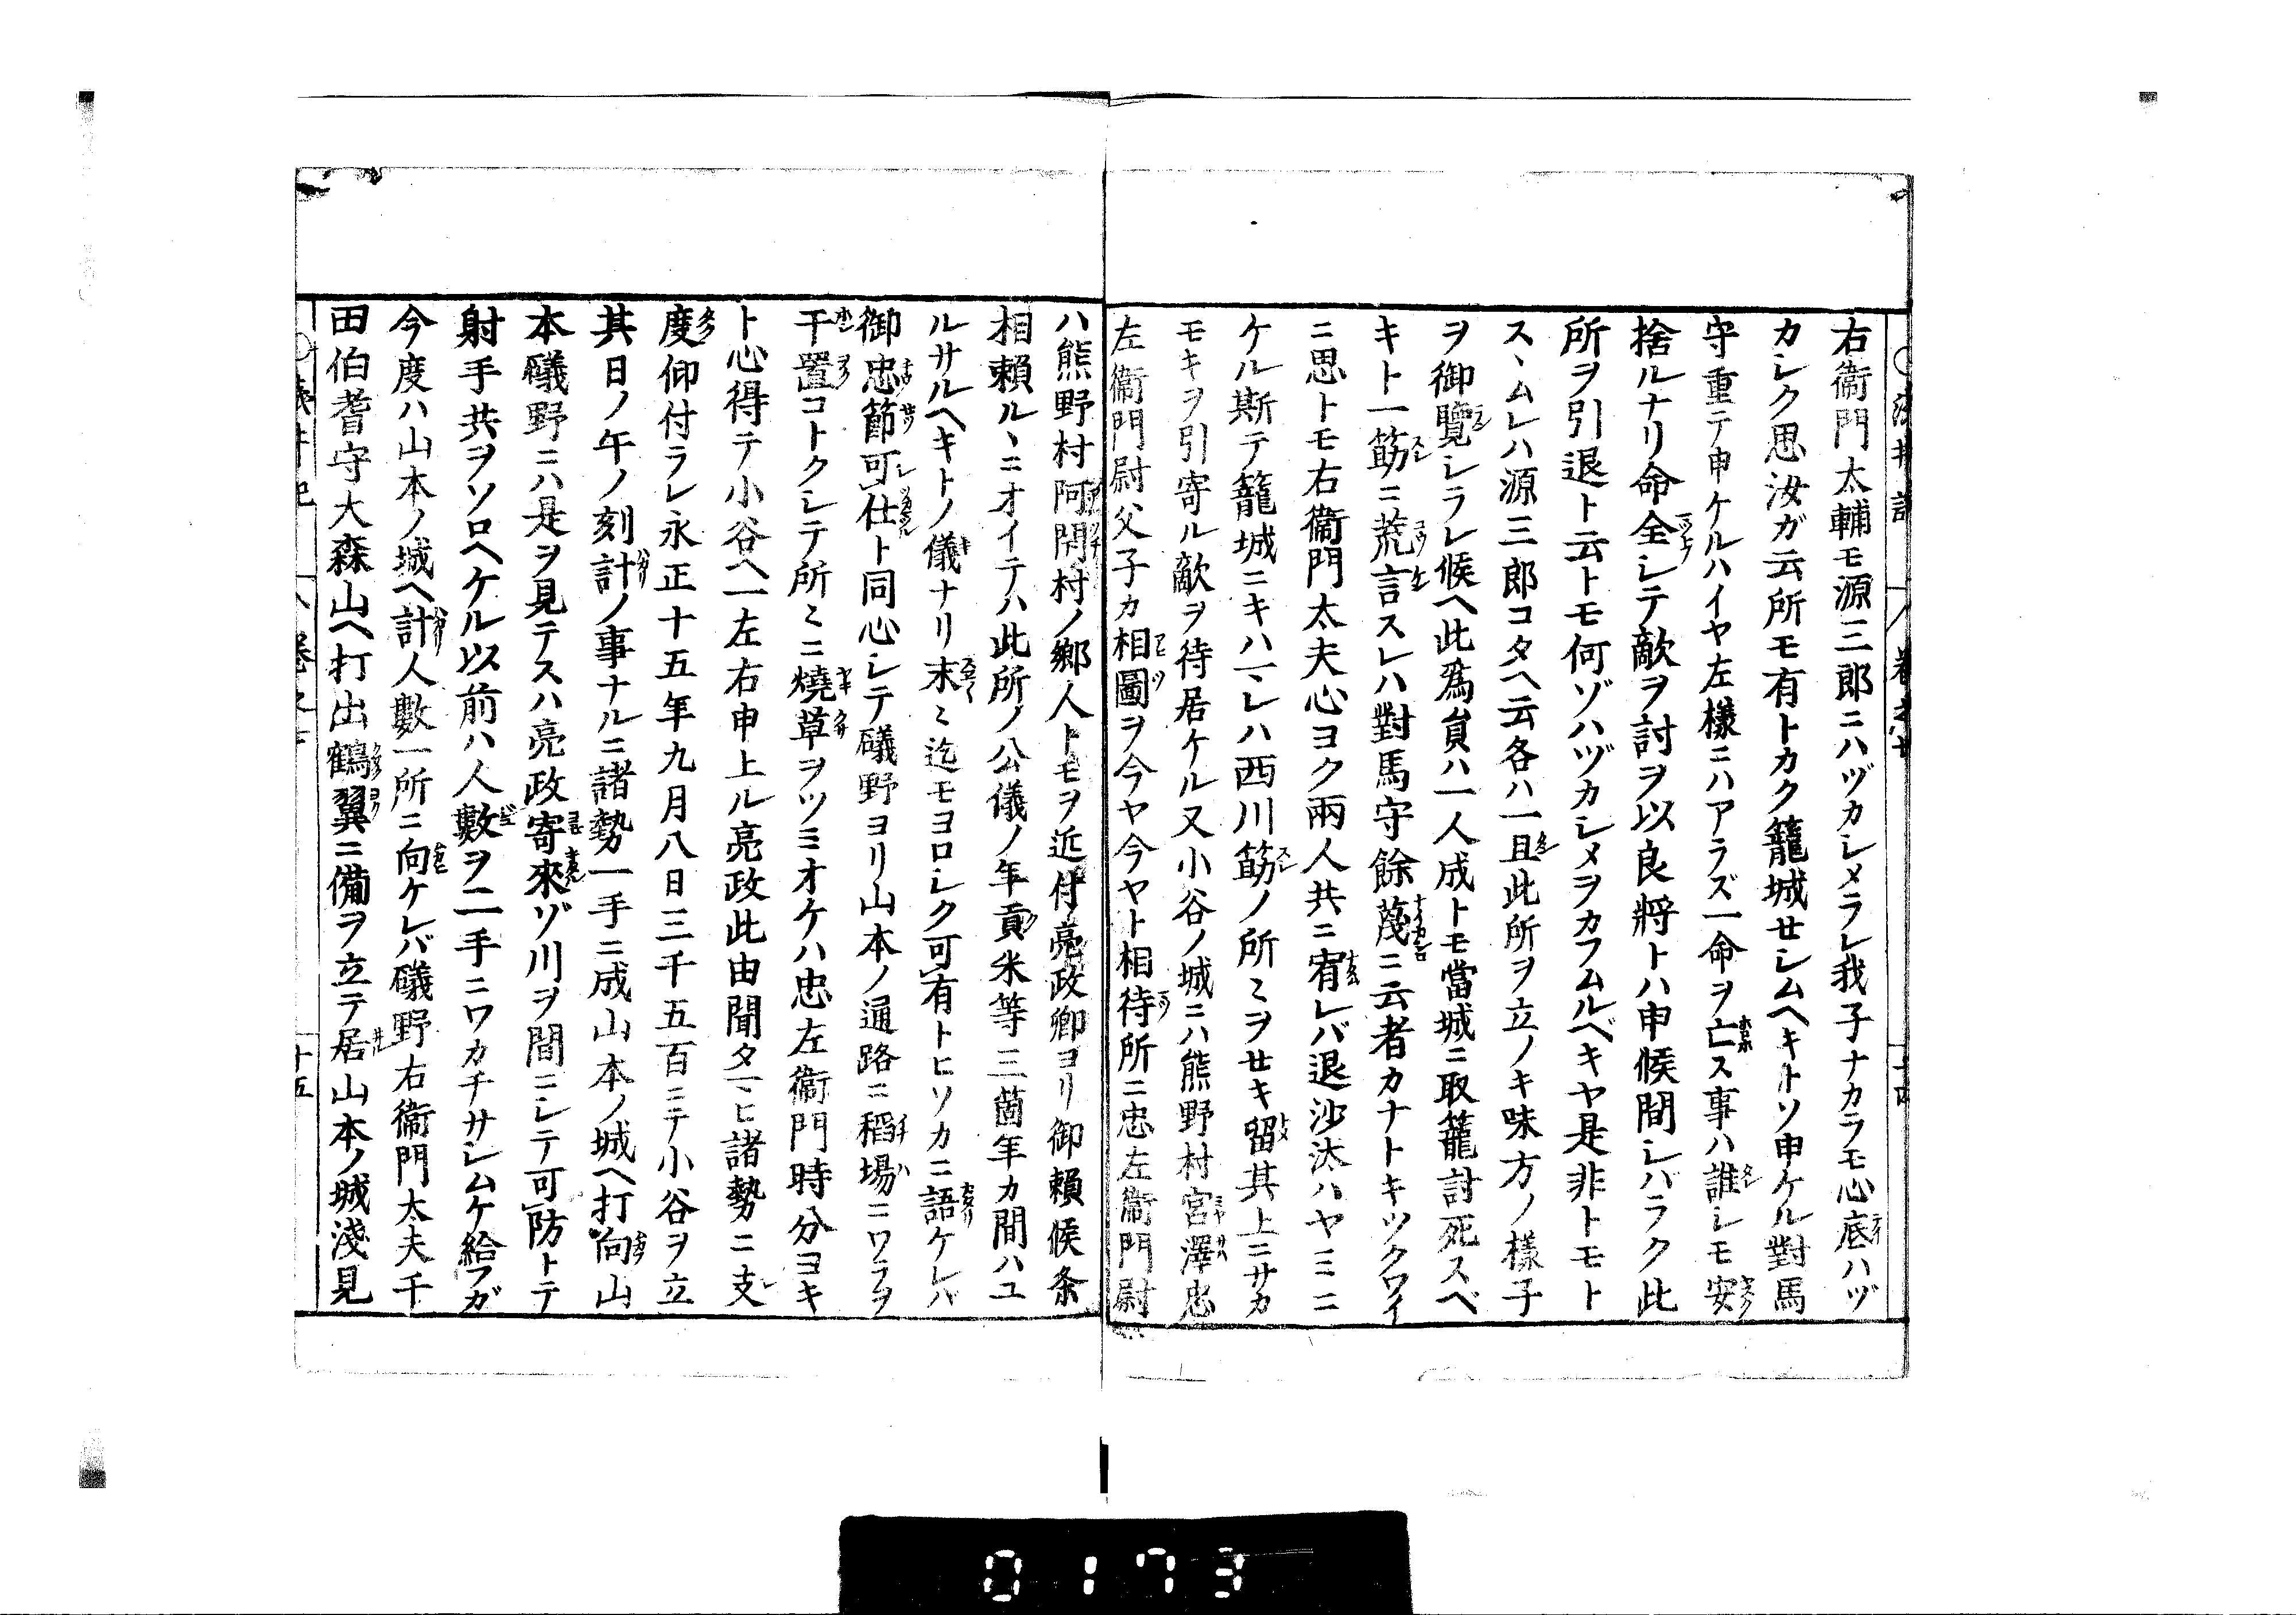 右衞門太輔モ源三郎ニハヅカシメラレ我子ナカラモ心底ハヅ
カシク思汝ガ云所モ有トカク籠城セシムヘキトソ申ケル對馬
守重テ申ケルハイヤ左樣ニハアラズ一命ヲ亡ス事ハ誰レモ安
捨ルナリ命全シテ敵ヲ討ヲ以良將トハ申候間シバラク此
所ヲ引退ト云トモ何ゾハヅカシメヲカフムルベキヤ是非トモト
スヽムレハ源三郎コタヘ云各ハ一且此所ヲ立ノキ味方ノ樣子
ヲ御覽シラレ候ヘ此爲員ハ一人成トモ當城ニ取籠討死スベ
キト一筋ニ荒言スレハ對馬守餘蔑ニ云者カナトキツクワイ
ニ思トモ右衞門太夫心ヨク兩人共ニ宥レバ退沙汰ハヤミニ
ケル斯テ籠城ニキハマレハ西川筋ノ所ミヲセキ留其上ニサカ
モキヲ引寄ル敵ヲ待居ケル又小谷ノ城ニハ熊野村宮澤忠
左衞門尉父子カ相圖ヲ今ヤ今ヤト相待所ニ忠左衞門尉
ハ熊野村阿閇村ノ鄕人トモヲ近付亮政卿ヨリ御賴候条
相賴ルヽニオイテハ此所ノ公儀ノ年貢米等三箇年カ間ハユ
ルサルヘキトノ儀ナリ末ミ迄モヨロシク可有トヒソカニ語ケレハ
御忠節可仕ト同心シテ礒野ヨリ山本ノ通路ニ稻場ニワラヲ
干置コトクシテ所ミニ燒草ヲツミオケハ忠左衞門時分ヨキ
ト心得テ小谷ヘ一左右申上ル亮政此由聞タマヒ諸勢ニ支
度仰付ラレ永正十五年九月八日三千五百ニテ小谷ヲ立
其日ノ午ノ刻計ノ事ナルニ諸勢一手ニ成山本ノ城ヘ打向山
本礒野ニハ是ヲ見テスハ亮政寄來ゾ川ヲ間ニシテ可防トテ
射手共ヲソロヘケル以前ハ人數ヲ二手ニワカチサシムケ給フガ
今度ハ山本ノ城ヘ計人數一所ニ向ケレバ礒野右衞門太夫千
田伯耆守大森山ヘ打出鶴翼ニ備ヲ立テ居山本ノ城淺見
十五
0173